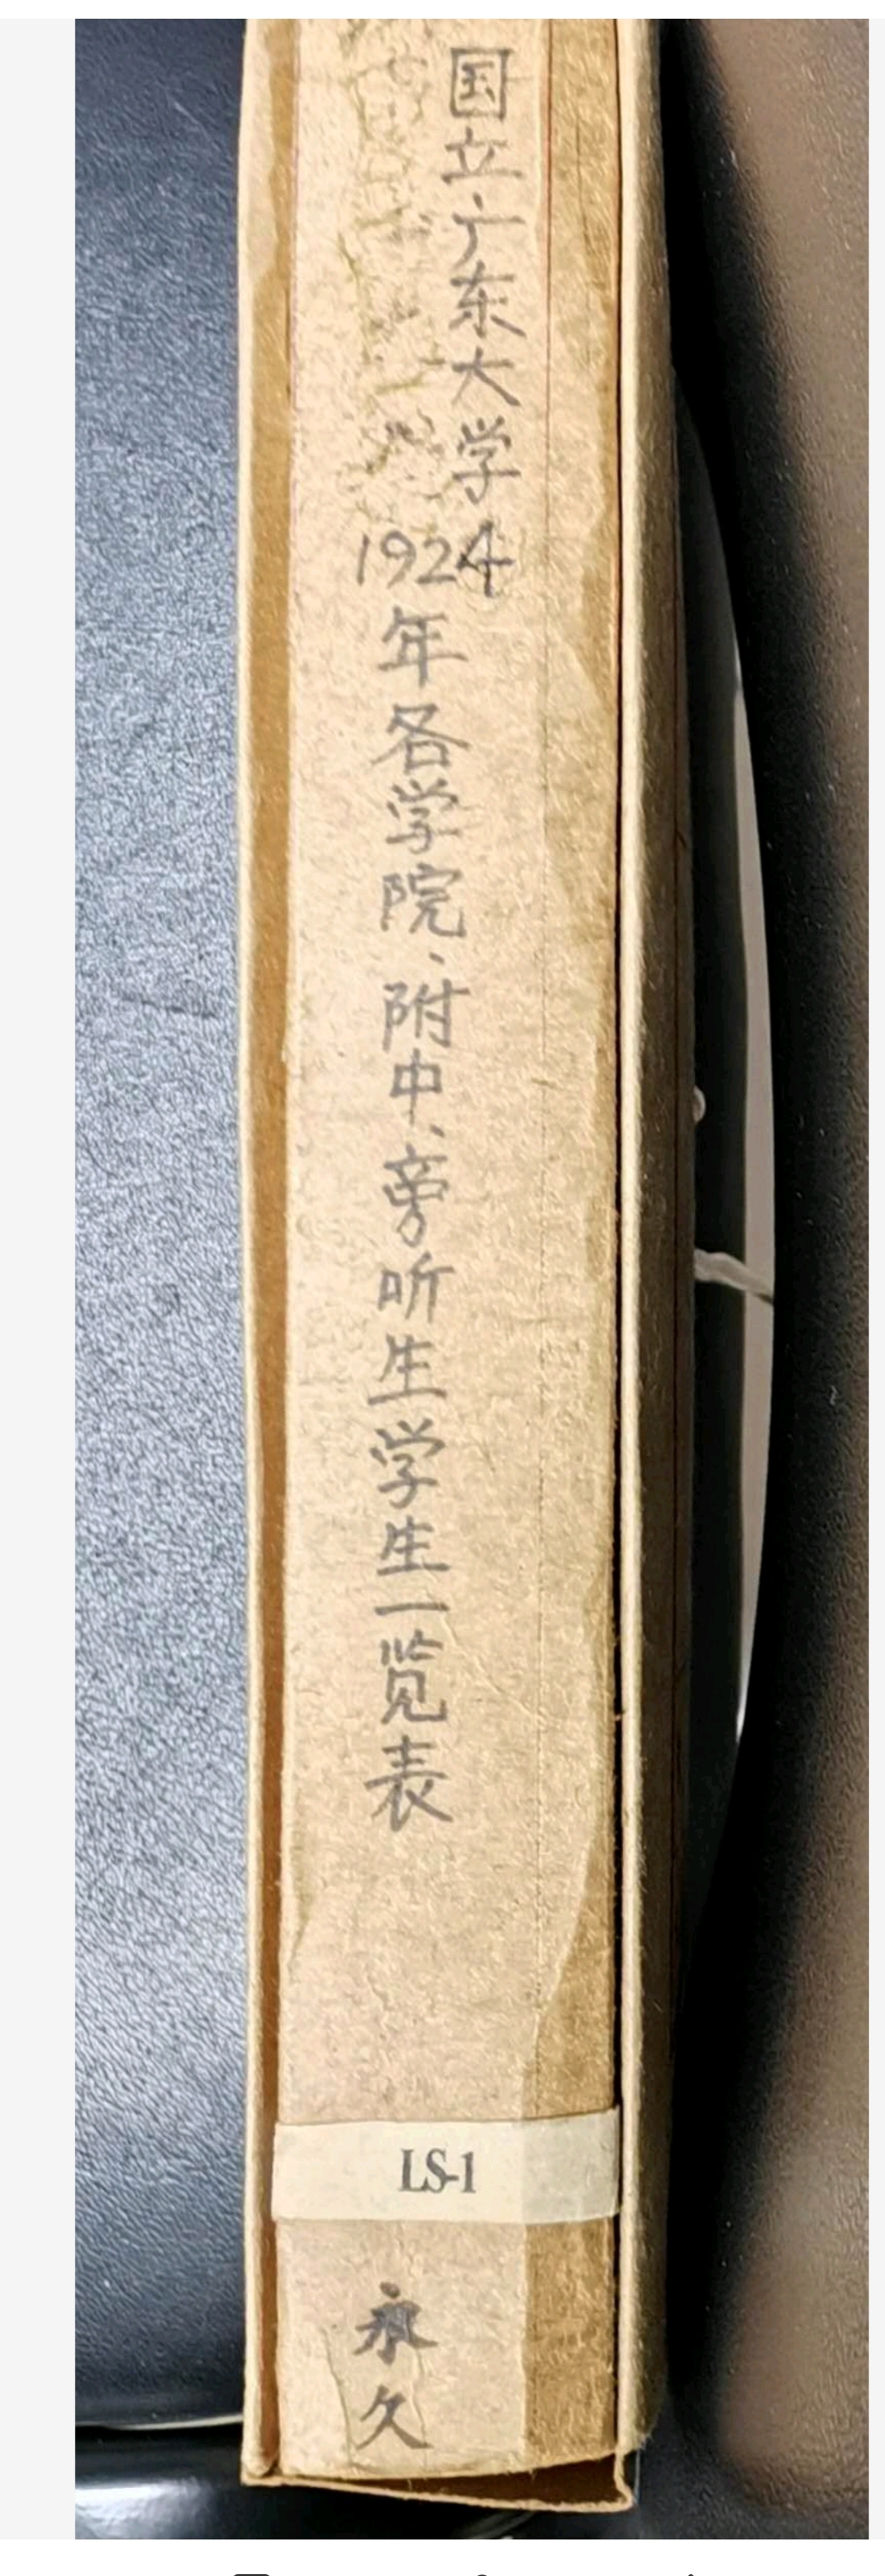 国立广东大学
1924年各学院、附中、旁听生学生一览表
LS-1
永久